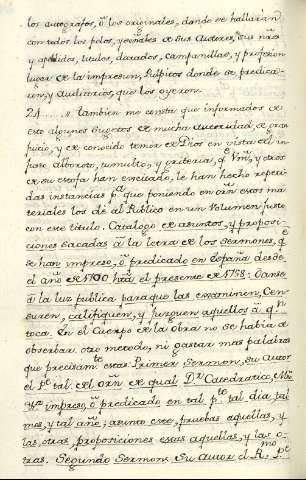 los autografos, ô los originales, donde se hallarán
con todos los pelos, y señales de sus Autores, sus nres
y apellidos, titulos, dictados, campanillas, y profesion
lugar de la impresion, Pulpitos donde se predica-
ron, y auditorios, que los oyeron.
24..... Tambien me consta que informados de
esto algunos sugetos de mucha autoridad, de gran
juicio, y de conocido temor de Dios en vista del in-
justo alboroto, tumulto, y griteria, q. Vm, y otros
de su estofa han excitado, le han hecho repeti-
das instancias pa que poniendo en orn estos ma-
teriales los dé al Publico en un Volumen justo
con este titulo. Catalogo de asuntos, y proposi-
ciones sacadas à la letra de los Sermones, qe
se han impreso, ô predicado en España desde
el año de 1700 hta el presente de 1758: Danse
à la luz publica para que las examinen, Cen-
suren, califiquen, y juzguen aquellos à qn
toca. En el Cuerpo de la Obra no se habia de
observar otro metodo, ni gastar mas palabras
que precisamte estas: Primer Sermon, su Autor
el Pe tal: del orn de qual Dr Catedratico,
impreso, ô predicado en tal pte tal dia, tal
mes, y tal año; asunto este, pruebas aquellas, y
las otras, proposiciones esas aquellas, y las o-
tras. Segundo Sermon: Su Autor el Rmo Pe